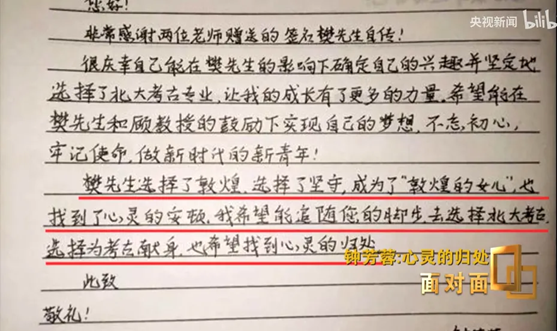 您好!
央视新闻 bilibili
非常感谢两位老师赠送的签名樊先生自传!
很庆幸自己能在樊先生的影响下确定自己的兴趣并坚定地
选择了北大考古专业,让我的成长有了更多的力量。希望能在
樊先生和顾教授的鼓励下实现自己的梦想,不忘初心,
牢记使命,做新时代的新青年!
樊先生选择了敦煌,选择了坚守,成为了“敦煌的女儿”,也
找到了心灵的安顿。我希望能追随您的脚步去选择北大考古,
选择为考古献身,也希望找到心灵的归处
钟芳蓉:心灵的归处
面对面
此致
敬礼!